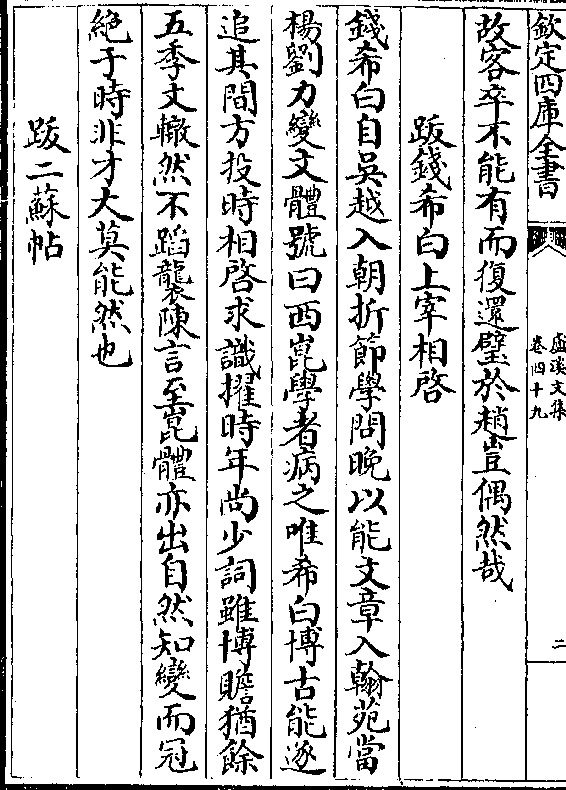 欽定四庫全書
盧溪文集
卷四十九
二
故客卒不能有而復還璧於趙豈偶然哉
跋錢希白上宰相啓
錢希白自吳越入朝折節學問晚以能文章入翰苑當
楊劉力變文體號曰西崑學者病之唯希白博古能逐
追其間方投時相啓求識擢時年尚少詞雖博贍猶餘
五季文轍然不蹈襲陳言至崑體亦出自然知變而冠
絶于時非才大莫能然也
跋二蘇帖